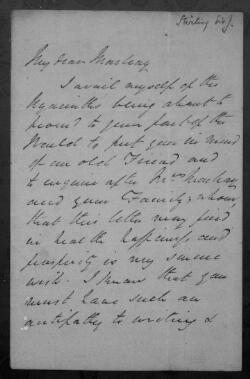 Stirling
My dear Macleay
I avail myself of the
Hyacinths being about to
proceed to your part of the
World to put you in mind
of an old Friend and
to enquire after Mrs Macleay
and your Family, whom
that this letter may find
in health happiness and
prosperity is my sincere
wish. I know that you
must have such an
antipathy to writing &